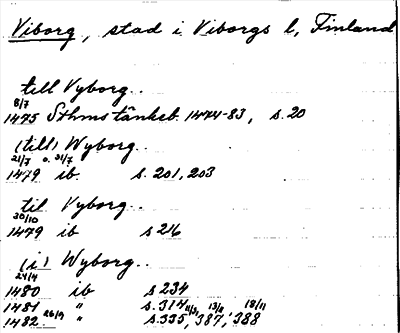 Viborg, stad i Viborgs l, Finland
till Vyborg..
8/7
1475 Sthms tänkeb. 1474-83, s. 20
(till) Wyborg..
21/7 o. 31/7
1479 ib. s. 201, 203
til Vyborg..
30/10
1479 ib s 216
(i) Wyborg..
24/4
1480 ib s 234
1481 " s. 314
26/9 11/3 13/11 18/11
1482 " s. 335, 387, 388